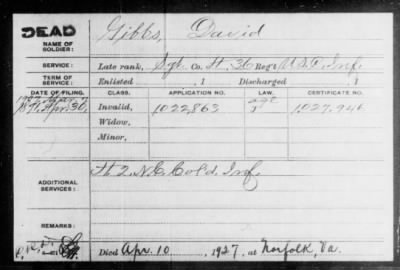 DEAD
NAME OF SOLDIER: Gibbs, David
SERVICE: Late rank, Sgt. Co. H, 36 Reg't U.S.C. Inf.
TERM OF SERVICE: Enlisted , 1 Discharged , 1
DATE OF FILING. CLASS. APPLICATION NO. LAW. CERTIFICATE NO.
Invalid, 1022,863 age 1027,946
Apr. 30,
Widow,
Minor,
ADDITIONAL SERVICES: H 2. N.C. Cold. Inf.
REMARKS:
Died Apr. 10, 1927, at Norfolk, Va.